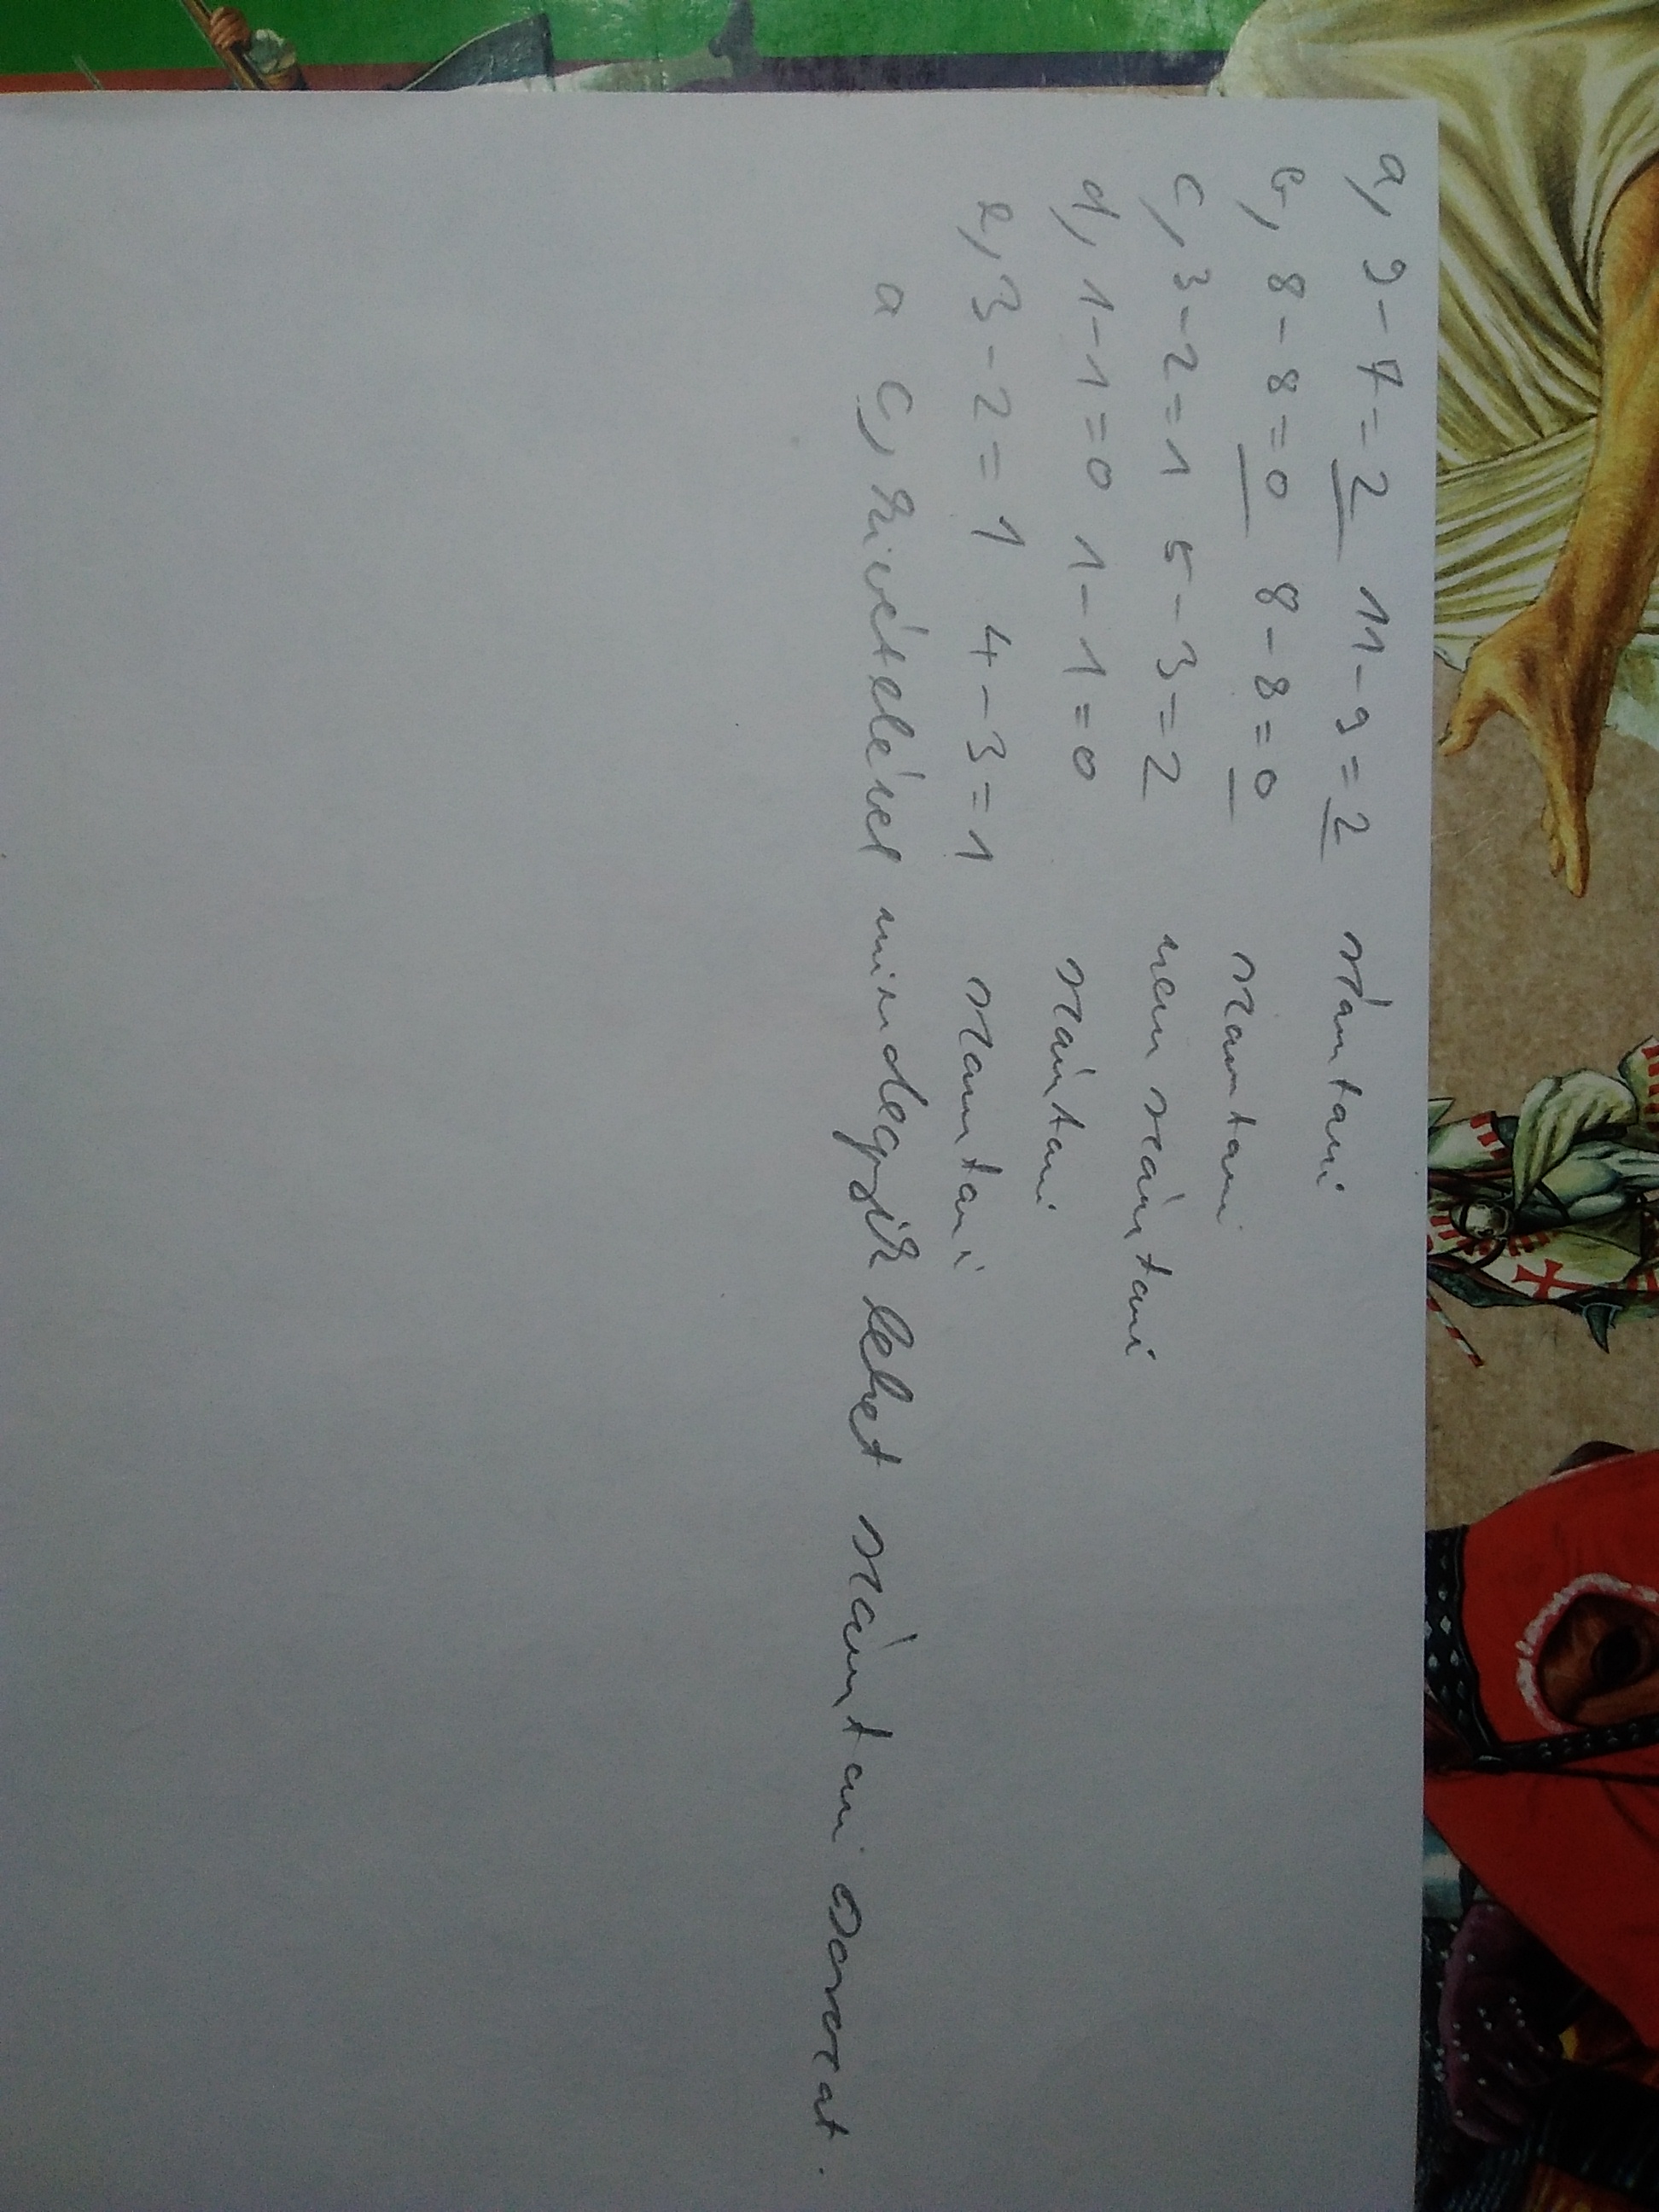 a, 9-7=2 11-9=2 számtani
b, 8-8=0 8-8=0 szamtani
c, 3-2=1 5-3=2 nem számtani
d, 1-1=0 1-1=0 számtani
e, 3-2=1 4-3=1 szamtani
a c, kivételével mindegyik lehet számtani sorozat.